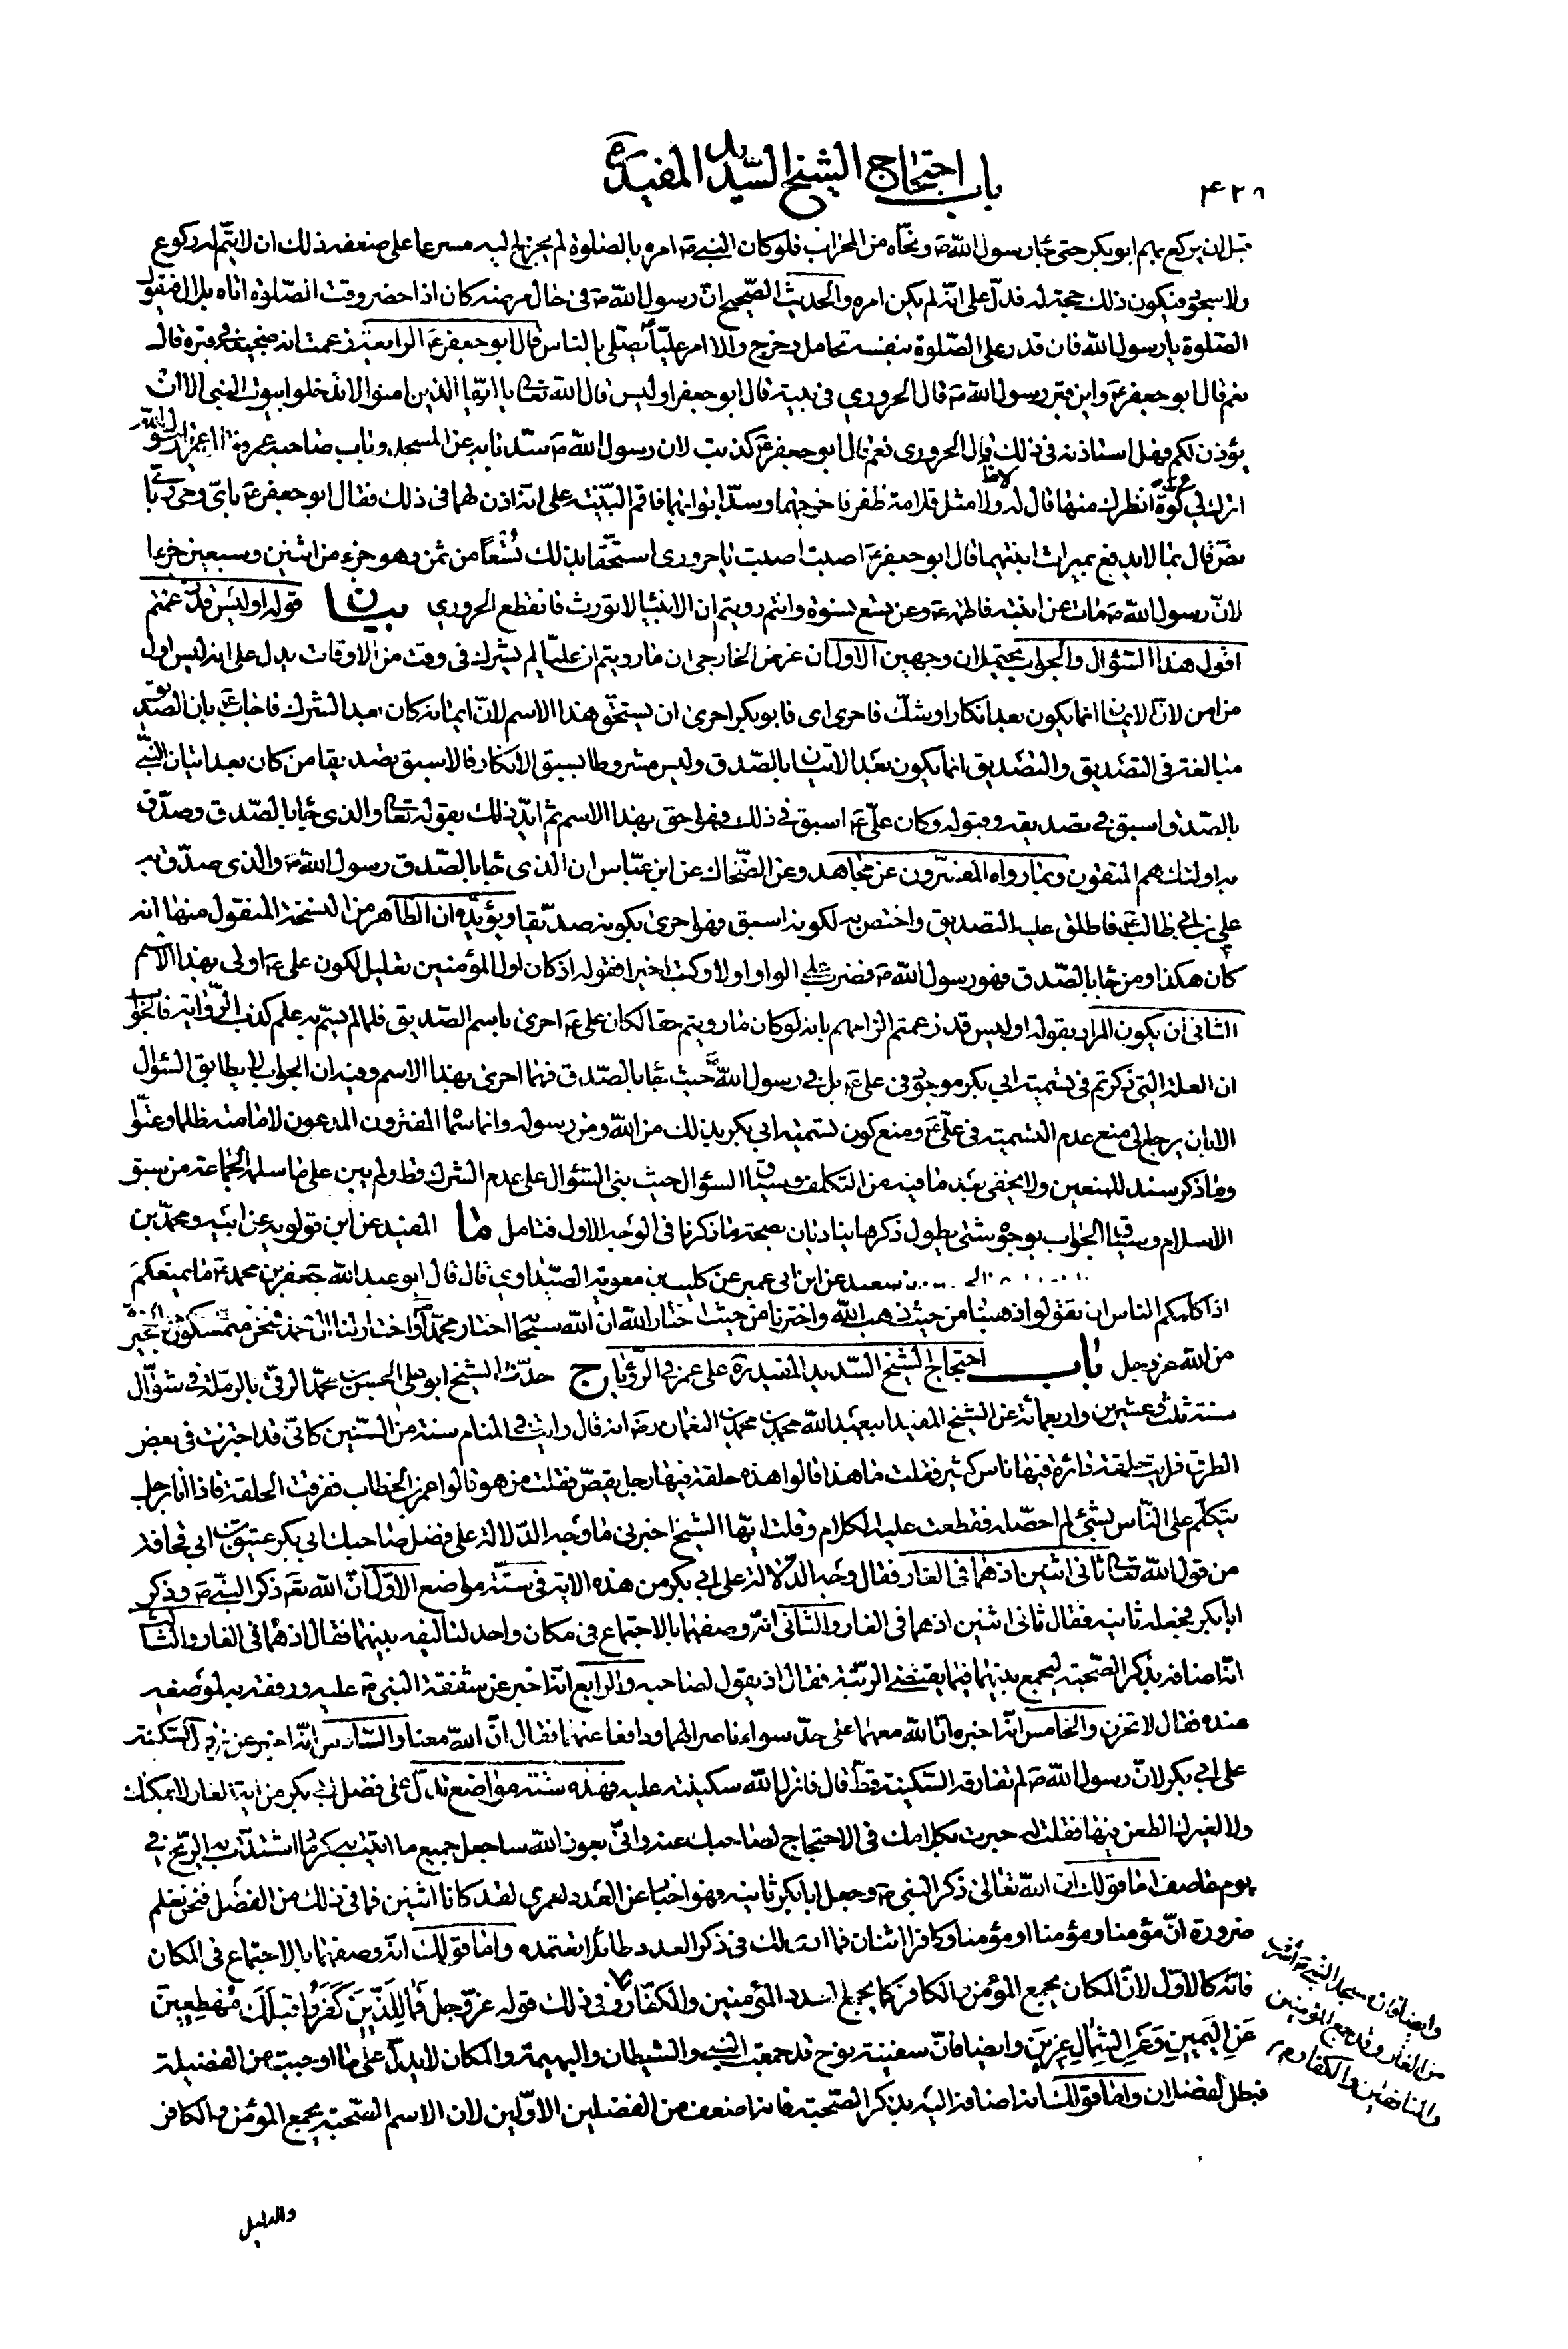 ٤٢٨
باب احتجاج الشيخ السديد المفيد ره
قبل ان يركع بهم ابو بكر حتى جاء رسول الله ص ونحاه من المحراب فلو كان النبي ص امره بالصلوة لم يخرج اليه مسرعا على ضعفه ذلك ان لا يتم له ركوع
ولا سجود فيكون ذلك حجة له فدل على انه لم يكن امره والحديث الصحيح ان رسول الله ص في حال مرضه كان اذا حضر وقت الصلوة اتاه بلال فيقول
الصلوة يا رسول الله فان قدر على الصلوة بنفسه تحامل وخرج والا امر عليا ع يصلى بالناس قال ابو جعفر ع الرابعة زعمت انه ضجيعه في قبره قال
نعم قال ابو جعفر ع واين قبر رسول الله ص قال الحروري في بيته قال ابو جعفر اوليس قال الله تعالى يا ايها الذين امنوا لا تدخلوا بيوت النبي الا ان
يؤذن لكم فهل استاذنه في ذلك قال الحروري نعم قال ابو جعفر ع كذبت لان رسول الله ص سد بابه عن المسجد وباب صاحبه عمر فقال عمر يا رسول الله
اترك لي كوة انظرك منها قال له ولا مثل قلامة ظفر فاخرجهما وسد ابوابهما فاقم البينة على انه اذن لهما في ذلك فقال ابو جعفر ع باي وحي وباي
نص قال بما لا يدفع بميراث ابنتيهما قال ابو جعفر ع اصبت اصبت يا حروري استحقا بذلك تسعا من ثمن وهو جزء من اثنين وسبعين جزءا
لان رسول الله ص مات عن ابنته فاطمة ع وعن تسع نسوة وانتم رويتم ان الانبياء لا تورث فانقطع الحروري بيان قوله اوليس قد زعمتم
اقول هذا السؤال والجواب يحتملان وجهين الاول ان غرض الخارجي ان ما رويتم ان عليا لم يشرك في وقت من الاوقات يدل على انه ليس اول
من امن لان الايمان انما يكون بعد انكار او شك فاحرى اي فابو بكر احرى ان يستحق هذا الاسم لان ايمانه كان بعد الشرك فاجاب ع بان الصديق
مبالغة في التصديق والتصديق انما يكون بعد الاتيان بالصدق وليس مشروطا بسبق الانكار فالاسبق تصديقا من كان بعد اتيان النبي
بالصدق اسبق في تصديقه وقبوله وكان علي ع اسبق في ذلك فهو احق بهذا الاسم ثم ايد ذلك بقوله تعالى والذي جاء بالصدق وصدق
به اولئك هم المتقون وبما رواه المفسرون عن مجاهد وعن الضحاك عن ابن عباس ان الذي جاء بالصدق رسول الله ص والذي صدق به
علي بن ابي طالب ع فاطلق عليه التصديق واختص به لكونه اسبق فهو احرى بكونه صديقا ويؤيده ان الظاهر من النسخة المنقول منها انه
كان هكذا ومن جاء بالصدق فهو رسول الله ص فضرب على الواو اولا وكتب اخيرا فقوله اذ كان اول المؤمنين تعليل لكون علي ع اولى بهذا الاسم
الثاني ان يكون المراد بقوله اوليس قد زعمتم الزامهم بانه لو كان ما رويتم حقا لكان علي ع احرى باسم الصديق فلما لم يسم به علم كذب الرواية فالجواب
ان العلة التي ذكرتم في تسمية ابي بكر موجود في علي ع بل في رسول الله ص حيث جاء بالصدق فهما احرى بهذا الاسم وفيه ان الجواب لا يطابق السؤال
الا بان يرجع الى منع عدم التسمية في علي ع ومنع كون تسمية ابي بكر بذلك من الله ومن رسوله وانما سماه المفترون المدعون لامامته ظلما وعتوا
وما ذكر سند للمنعين ولا يخفى بعد ما فيه من التكلف وسياق السؤال حيث بنى السؤال على عدم الشرك فقط ولم يبن على ما سلمه الجماعة من سبق
الاسلام وسياق الجواب بوجوه شتى يطول ذكرها يناديان بصحة ما ذكرنا في الوجه الاول فتامل ما المفيد عن ابن قولويه عن ابيه ومحمد بن
سعيد عن ابن ابي عمير عن كليب بن معوية الصيداوي قال قال ابو عبد الله جعفر بن محمد ع ما يمنعكم
اذا كلمكم الناس ان تقولوا ذهبنا من حيث ذهب الله واخترنا من حيث اختار الله ان الله سبحانه اختار محمدا واختار لنا ال محمد فنحن متمسكون بالخيرة
من الله عز وجل باب احتجاج الشيخ السديد المفيد ره على عمر في الرؤيا ج حدث الشيخ ابو علي الحسن بن محمد الرقي بالرملة في شوال
سنة ثلث وعشرين واربعمائة عن الشيخ المفيد ابي عبد الله محمد بن محمد بن النعمان رضي انه قال رايت في المنام سنة من السنين كاني قد اجتزت في بعض
الطرق فرايت حلقة دائرة فيها ناس كثير فقلت ما هذا قالوا هذه حلقة فيها رجل يقص فقلت من هو قالوا عمر بن الخطاب ففرقت الحلقة فاذا انا برجل
يتكلم على الناس بشيء لم احصله فقطعت عليه الكلام وقلت ايها الشيخ اخبرني ما وجه الدلالة على فضل صاحبك ابي بكر عتيق بن ابي قحافة
من قول الله تعالى ثاني اثنين اذ هما في الغار فقال وجه الدلالة على ابي بكر من هذه الاية في ستة مواضع الاول ان الله تعالى ذكر النبي ص وذكر
ابا بكر فجعله ثانيه فقال ثاني اثنين اذ هما في الغار والثاني انه وصفهما بالاجتماع في مكان واحد لتاليفه بينهما فقال اذ هما في الغار والثالث
انه اضافه بذكر الصحبة ليجمع بينهما فيما يقتضي الرتبة فقال اذ يقول لصاحبه والرابع انه اخبر عن شفقة النبي ص عليه ورفقه به لموضعه
عنده فقال لا تحزن والخامس انه اخبره ان الله معهما على حد سواء ناصرا لهما ودافعا عنهما فقال ان الله معنا والسادس انه اخبر عن نزول السكينة
على ابي بكر لان رسول الله ص لم تفارقه السكينة قط قال فانزل الله سكينته عليه فهذه ستة مواضع تدل على فضل ابي بكر من اية الغار لا يمكنك
ولا لغيرك الطعن فيها فقلت له حبرت بكلامك في الاحتجاج لصاحبك عنه واني بعون الله ساجعل جميع ما اتيت به كرماد اشتدت به الريح في
يوم عاصف اما قولك ان الله تعالى ذكر النبي ص وجعل ابا بكر ثانيه فهو اخبار عن العدد لعمري لقد كانا اثنين فما في ذلك من الفضل فنحن نعلم
ضرورة ان مؤمنا ومؤمنا او مؤمنا وكافرا اثنان فما ارى لك في ذكر العدد طائلا تعتمده واما قولك انه وصفهما بالاجتماع في المكان
فانه كالاول لان المكان يجمع المؤمن والكافر كما يجمع العدد المؤمنين والكفار وفي ذلك قوله عز وجل فَمالِ الَّذينَ كَفَرُوا قِبَلَكَ مُهْطِعينَ
عَنِ اليَمينِ وَعَنِ الشِّمالِ عِزينَ وايضا فان سفينة نوح قد جمعت النبي والشيطان والبهيمة والمكان لا يدل على ما اوجبت من الفضيلة
فبطل فضلان واما قولك انه اضافه اليه بذكر الصحبة فانه اضعف من الفضلين الاولين لان الاسم الصحبة يجمع المؤمن والكافر
وايضا فان مسجد النبي ص اشرف
من الغار وقد جمع المؤمنين
والمنافقين والكفار
والدليل